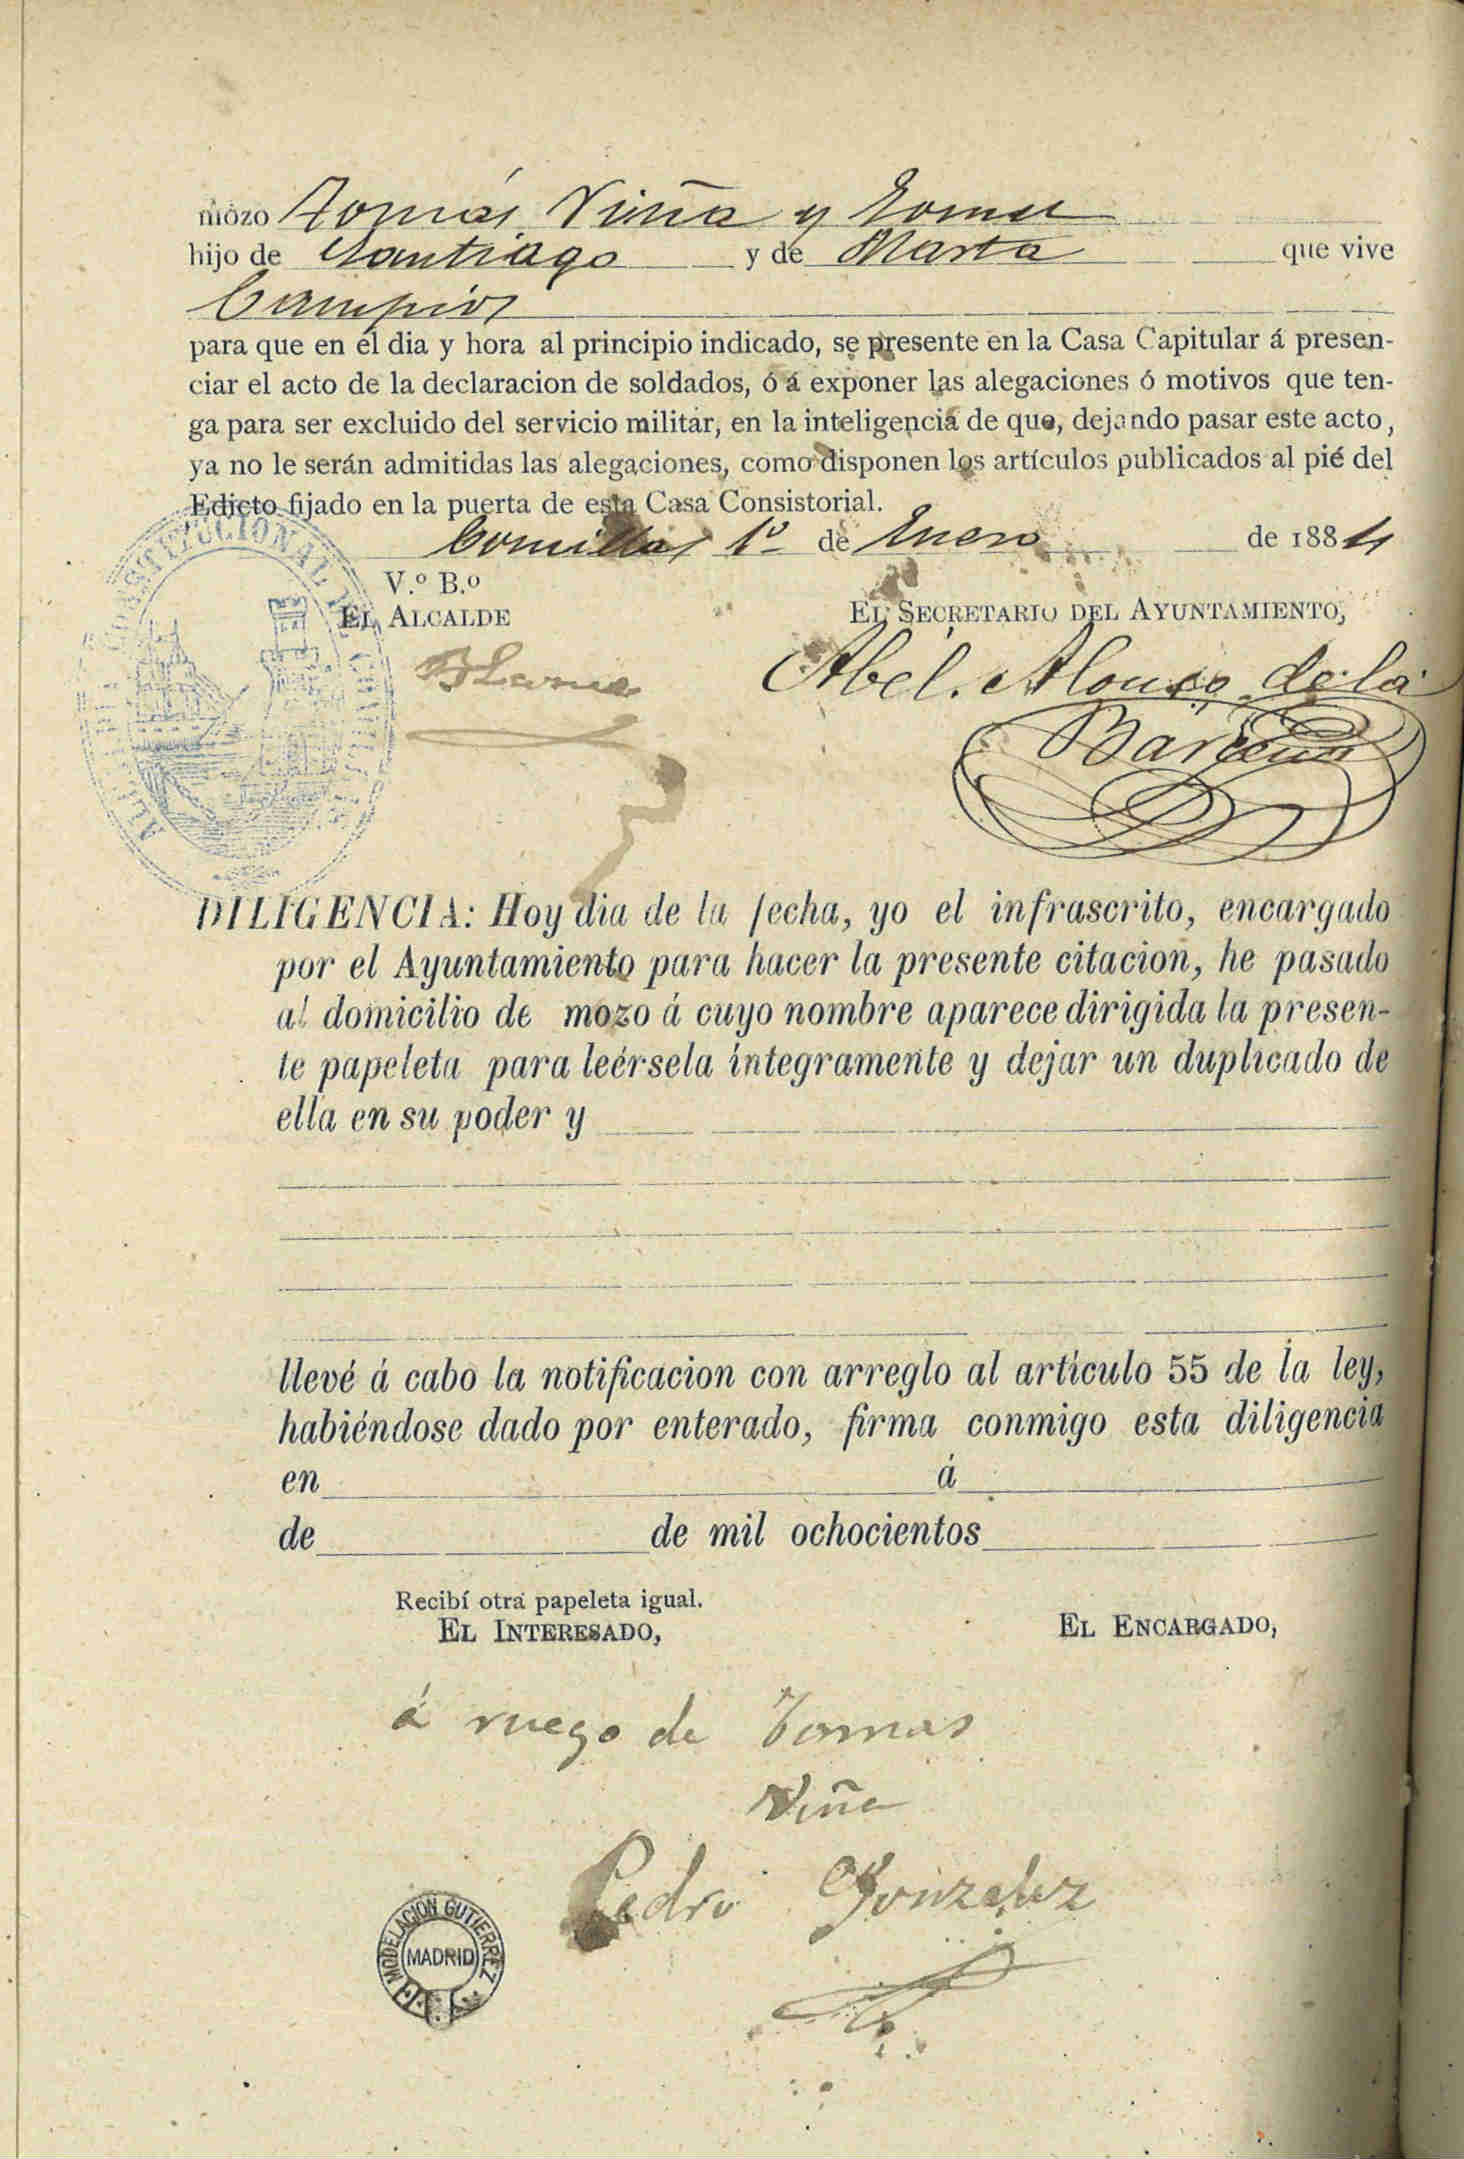 mozo Tomás Viña y Gomez
hijo de Santiago y de Marta que vive
Campios
para que en el dia y hora al principio indicado, se presente en la Casa Capitular á presen-
ciar el acto de la declaracion de soldados, ó á exponer las alegaciones ó motivos que ten-
ga para ser excluido del servicio militar, en la inteligencia de que, dejando pasar este acto,
ya no le serán admitidas las alegaciones, como disponen los artículos publicados al pié del
Edicto fijado en la puerta de esta Casa Consistorial.
Comillas 1º de Enero de 1884
V.º B.º
EL ALCALDE
EL SECRETARIO DEL AYUNTAMIENTO,
Abel. Alonso de la
Bárcena
CONSTITUCIONAL
DILIGENCIA: Hoy dia de la fecha, yo el infrascrito, encargado
por el Ayuntamiento para hacer la presente citacion, he pasado
al domicilio de mozo á cuyo nombre aparece dirigida la presen-
te papeleta para leérsela íntegramente y dejar un duplicado de
ella en su poder y
llevé á cabo la notificacion con arreglo al artículo 55 de la ley,
habiéndose dado por enterado, firma conmigo esta diligencia
en á
de de mil ochocientos
Recibí otra papeleta igual.
EL INTERESADO,
EL ENCARGADO,
á ruego de Tomas
Viña
Pedro Gonzalez
MODELACION GUTIERREZ
MADRID